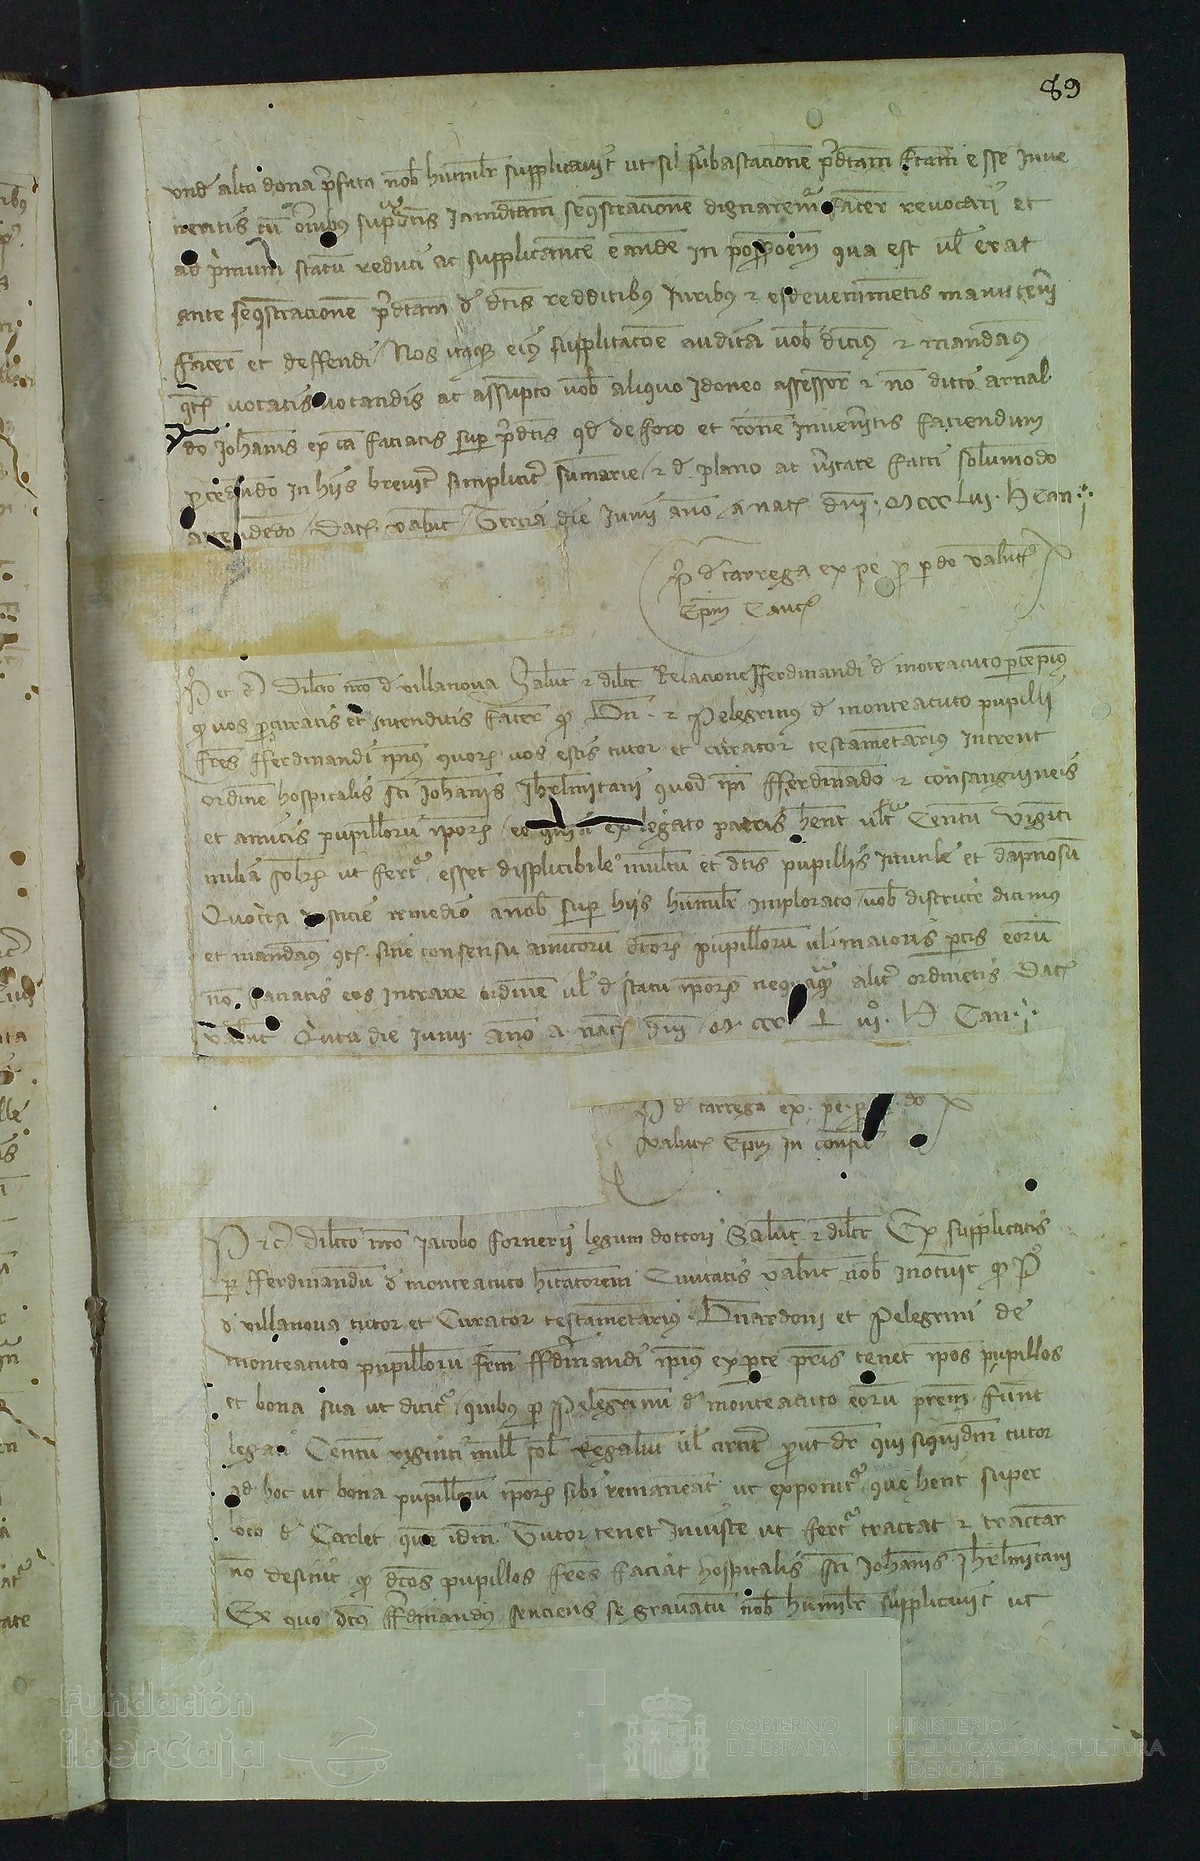 89
Und alta dona p̃fata nob̃ humilr̃ supplicavit ut si subastacionẽ p̃dtam ̃ esse inve
neratis cũ oĩbus supradtis iamdtam seq̃stracionẽ dignaremur facer̃ revocari et
ad p̃mium statũ reduci ac supplicantẽ eandẽ in possoẽm qua est ul̃ erat
ante seq̃stracionẽ p̃dtam d̃ dtis redditibus iuribus ⁊ esdevenimẽtis manutenẽi
facer̃ et deffendi Nos itaq̃ eiꝰ supplicacõe audita vob̃ dicimꝰ ⁊ mandamꝰ
qt̃ vocatis vocandis ac assũpto vob̃ aliquo idoneo assessor̃ ⁊ nõ dicto arnal
do Johanis ex cã faciatis sup̃ p̃dtis qd̃ de foro et rõne invenẽitis faciendum
p̃cedendo in hiis brevit̃ simplicit̃ sũmarie ⁊ d̃ plano ac ṽitate facti solumodo
attendẽdo Dat̃ valẽnt Tercia die Junii ãno a nat̃ dñi Mº ccc Lvi H Can i
P̃ d̃ carrega ex pe p̃ p̃do valẽnt̃
Ep̃m Canc̃
P̃ et c̃ Dilc̃o nr̃o d̃ villanova Salut̃ ⁊ dilc̃ Relacione fferdinandi d̃ monteacuto p̃cepimꝰ
q̃ vos p̃curatis et intenditis facer̃ q̃ Bñ ⁊ Pelegrinus d̃ monteacuto pupilli
frẽs fferdinandi ip̃ius quor̃ vos estis tutor et curator testamẽtarius intrent
ordinẽ hospitalis sc̃i Johanis Jhrl̃mitani quod ip̃i fferdinãdo ⁊ consanguineis
et amicis pupillorũ ip̃or̃ eo ex legato patris hẽnt ult̃ Centũ viginti
milia sol̃r̃ ut fert̃ esset displicibile multũ et dtis pupillis inutile et dãpnosũ
Quocirca iusticie remedio a nob̃ sup̃ hiis humilr̃ implorato vob̃ districtẽ dicimus
et mandamꝰ qt̃ sine consensu amicorũ dc̃or̃ pupillorũ ul̃ maioris p̃tis eorũ
nõ faciatis eos intrare ordinẽ ul̃ d̃ statu ip̃or̃ nequaq̃ alit̃ ordinetis Dat̃
valẽnt Qnta die Junii ãno a nat̃ dñi Mº ccc L vi H Can i
P̃ d̃ carrega ex pe p̃ do
valẽnt̃ Ep̃m in consil̃
P̃ ⁊c̃ Dilc̃o nr̃o Jacobo fornerii legum doctori Salut̃ ⁊ dilc̃ Ex supplicatis
p̃ fferdinandũ d̃ monteacuto hĩtatorem Civitatis valẽnt nob̃ inotuit q̃ P̃
d̃ villanova tutor et Curator testamẽtarius Bñardoni et Pelegrini de
monteacuto pupillorũ frm̃ ffdinandi ip̃ius ex p̃te p̃ris tenet ip̃os pupillos
et bona sua ut dicit̃ quibus p̃ Pelegrinũ d̃ monteacuto eorũ prẽm fũnt
legati Centũ viginti mill̃ sol̃ Regaliũ ul̃ circit̃ p̃ut dr̃ qui siquidm̃ tutor
ad hoc ut bona pupillorũ ip̃or̃ sibi remaneãt ut exponit̃ que hẽnt super
loco d̃ Carlet que idm̃ Tutor tenet iniuste ut fert̃ tractat ⁊ tractar̃
nõ desinit q̃ dc̃os pupillos frẽs faciat hospitalis sc̃i Johanis Jhrl̃mitani
Ex quo dc̃us ffdinandꝰ senciens se gravatũ nob̃ humilr̃ supplicavit ut
Fundación
iberCaja
GOBIERNO
DE ESPAÑA
MINISTERIO
DE EDUCACIÓN, CULTURA
Y DEPORTE